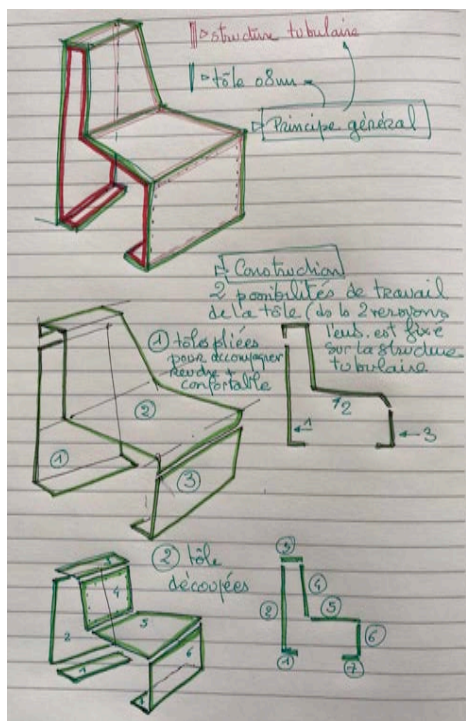 ▷ structure tubulaire
▷ tôle 08mm
▷ Principe général
▷ Construction
2 posibilités de travail
de la tôle (ds ls 2
l'ens. est fixé
sur la structure
tubulaire
① tôles pliées
pour
rendre +
confortable
②
①
③
1
2
3
② tôle
découpées
3
4
2
5
6
1
7
③
④
②
⑤
⑥
①
⑦